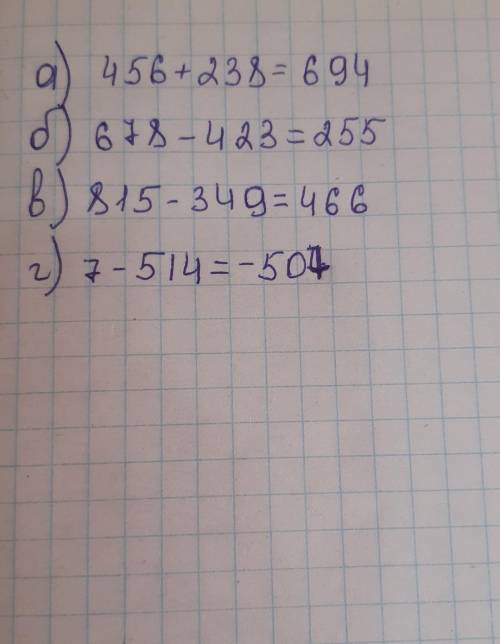 а) 456+238=694
б) 678-423=255
в) 815-349=466
г) 7-514=-507